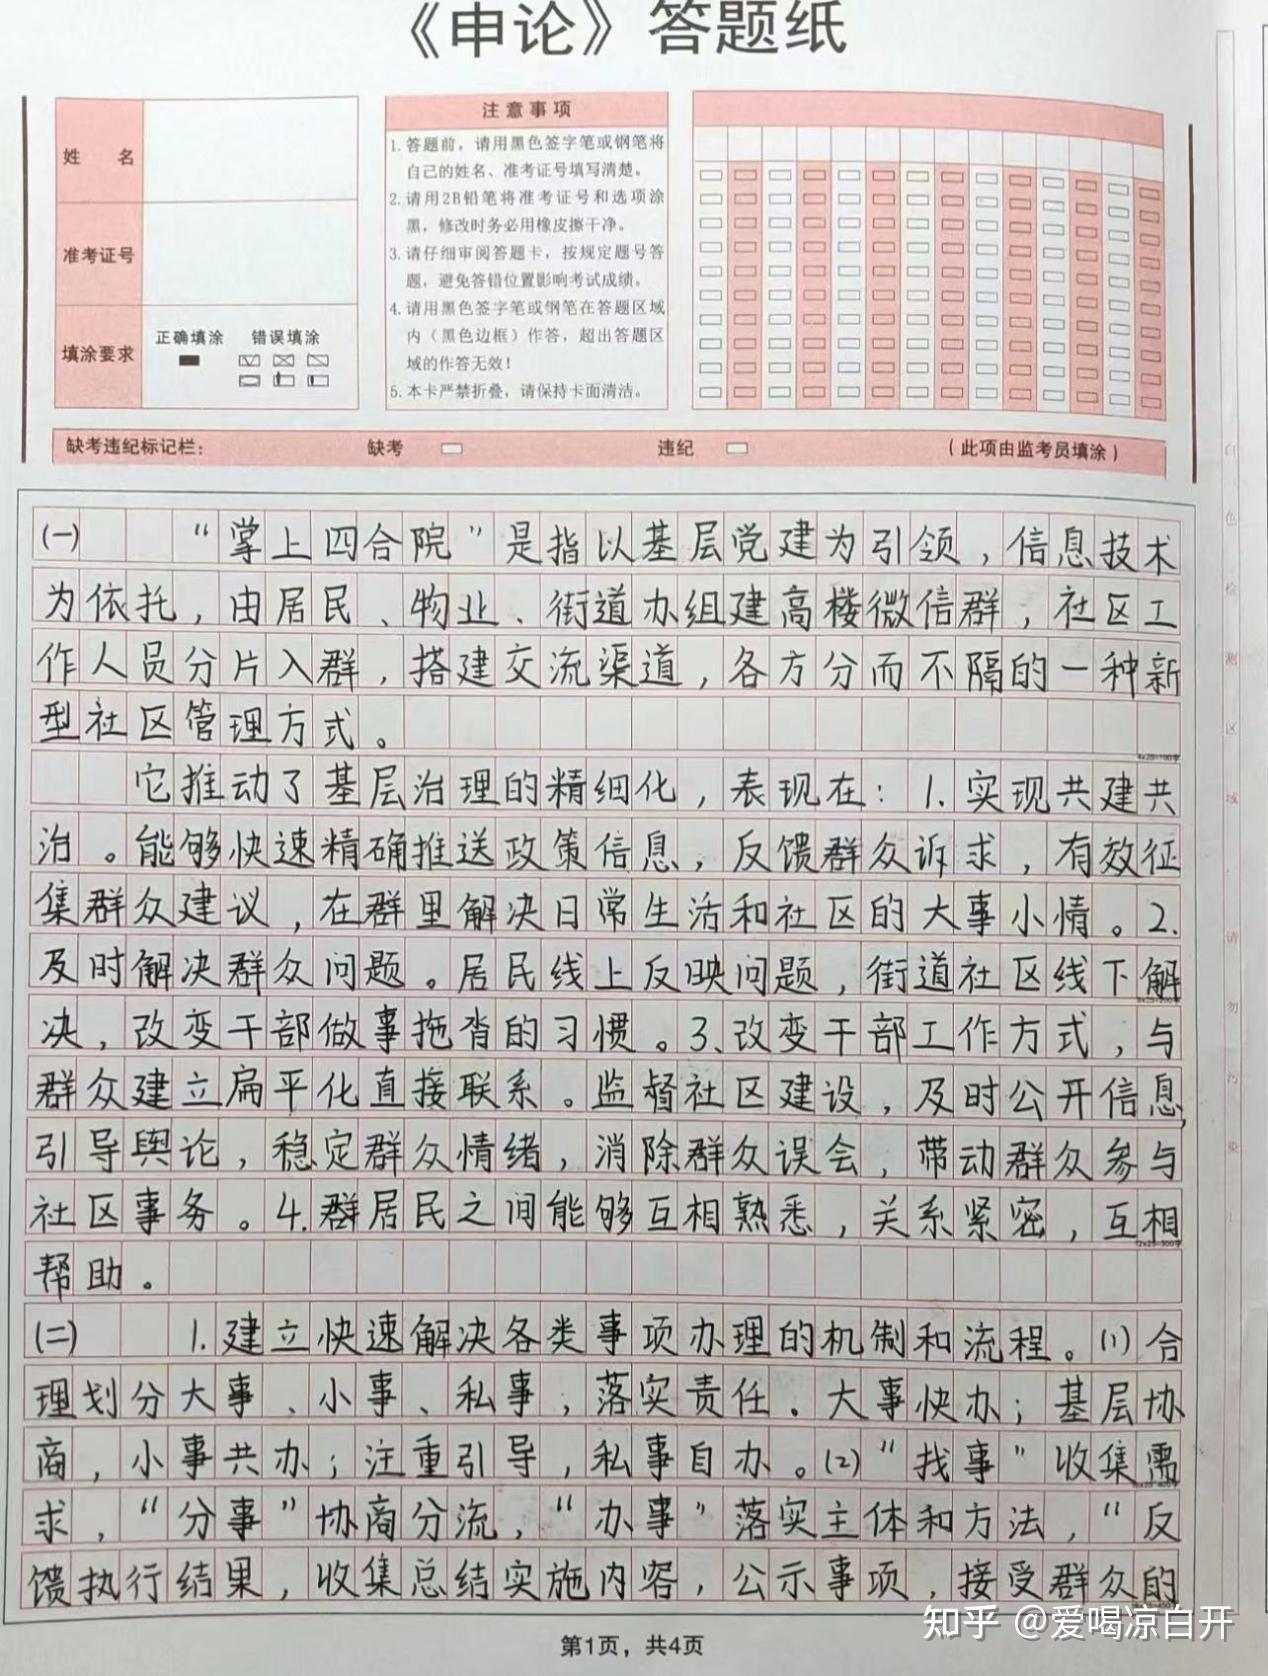 《申论》答题纸
姓 名
准考证号
填涂要求
正确填涂 错误填涂
注意事项
1. 答题前，请用黑色签字笔或钢笔将
自己的姓名、准考证号填写清楚。
2. 请用2B铅笔将准考证号和选项涂
黑，修改时务必用橡皮擦干净。
3. 请仔细审阅答题卡，按规定题号答
题，避免答错位置影响考试成绩。
4. 请用黑色签字笔或钢笔在答题区域
内（黑色边框）作答，超出答题区
域的作答无效！
5. 本卡严禁折叠，请保持卡面清洁。
缺考违纪标记栏： 缺考 违纪 （此项由监考员填涂）
(一) “掌上四合院”是指以基层党建为引领，信息技术
为依托，由居民、物业、街道办组建高楼微信群，社区工
作人员分片入群，搭建交流渠道，各方分而不隔的一种新
型社区管理方式。
它推动了基层治理的精细化，表现在：1.实现共建共
治。能够快速精确推送政策信息，反馈群众诉求，有效征
集群众建议，在群里解决日常生活和社区的大事小情。2.
及时解决群众问题。居民线上反映问题，街道社区线下解
决，改变干部做事拖沓的习惯。3、改变干部工作方式，与
群众建立扁平化直接联系。监督社区建设，及时公开信息，
引导舆论，稳定群众情绪，消除群众误会，带动群众参与
社区事务。4.群居民之间能够互相熟悉，关系紧密，互相
帮助。
(二) 1.建立快速解决各类事项办理的机制和流程。(1)合
理划分大事、小事、私事，落实责任。大事快办；基层协
商，小事共办；注重引导，私事自办。(2)“找事”收集需
求，“分事”协商分流，“办事”落实主体和方法，“反
馈执行结果，收集总结实施内容，公示事项，接受群众的
第1页，共4页
知乎 @爱喝凉白开